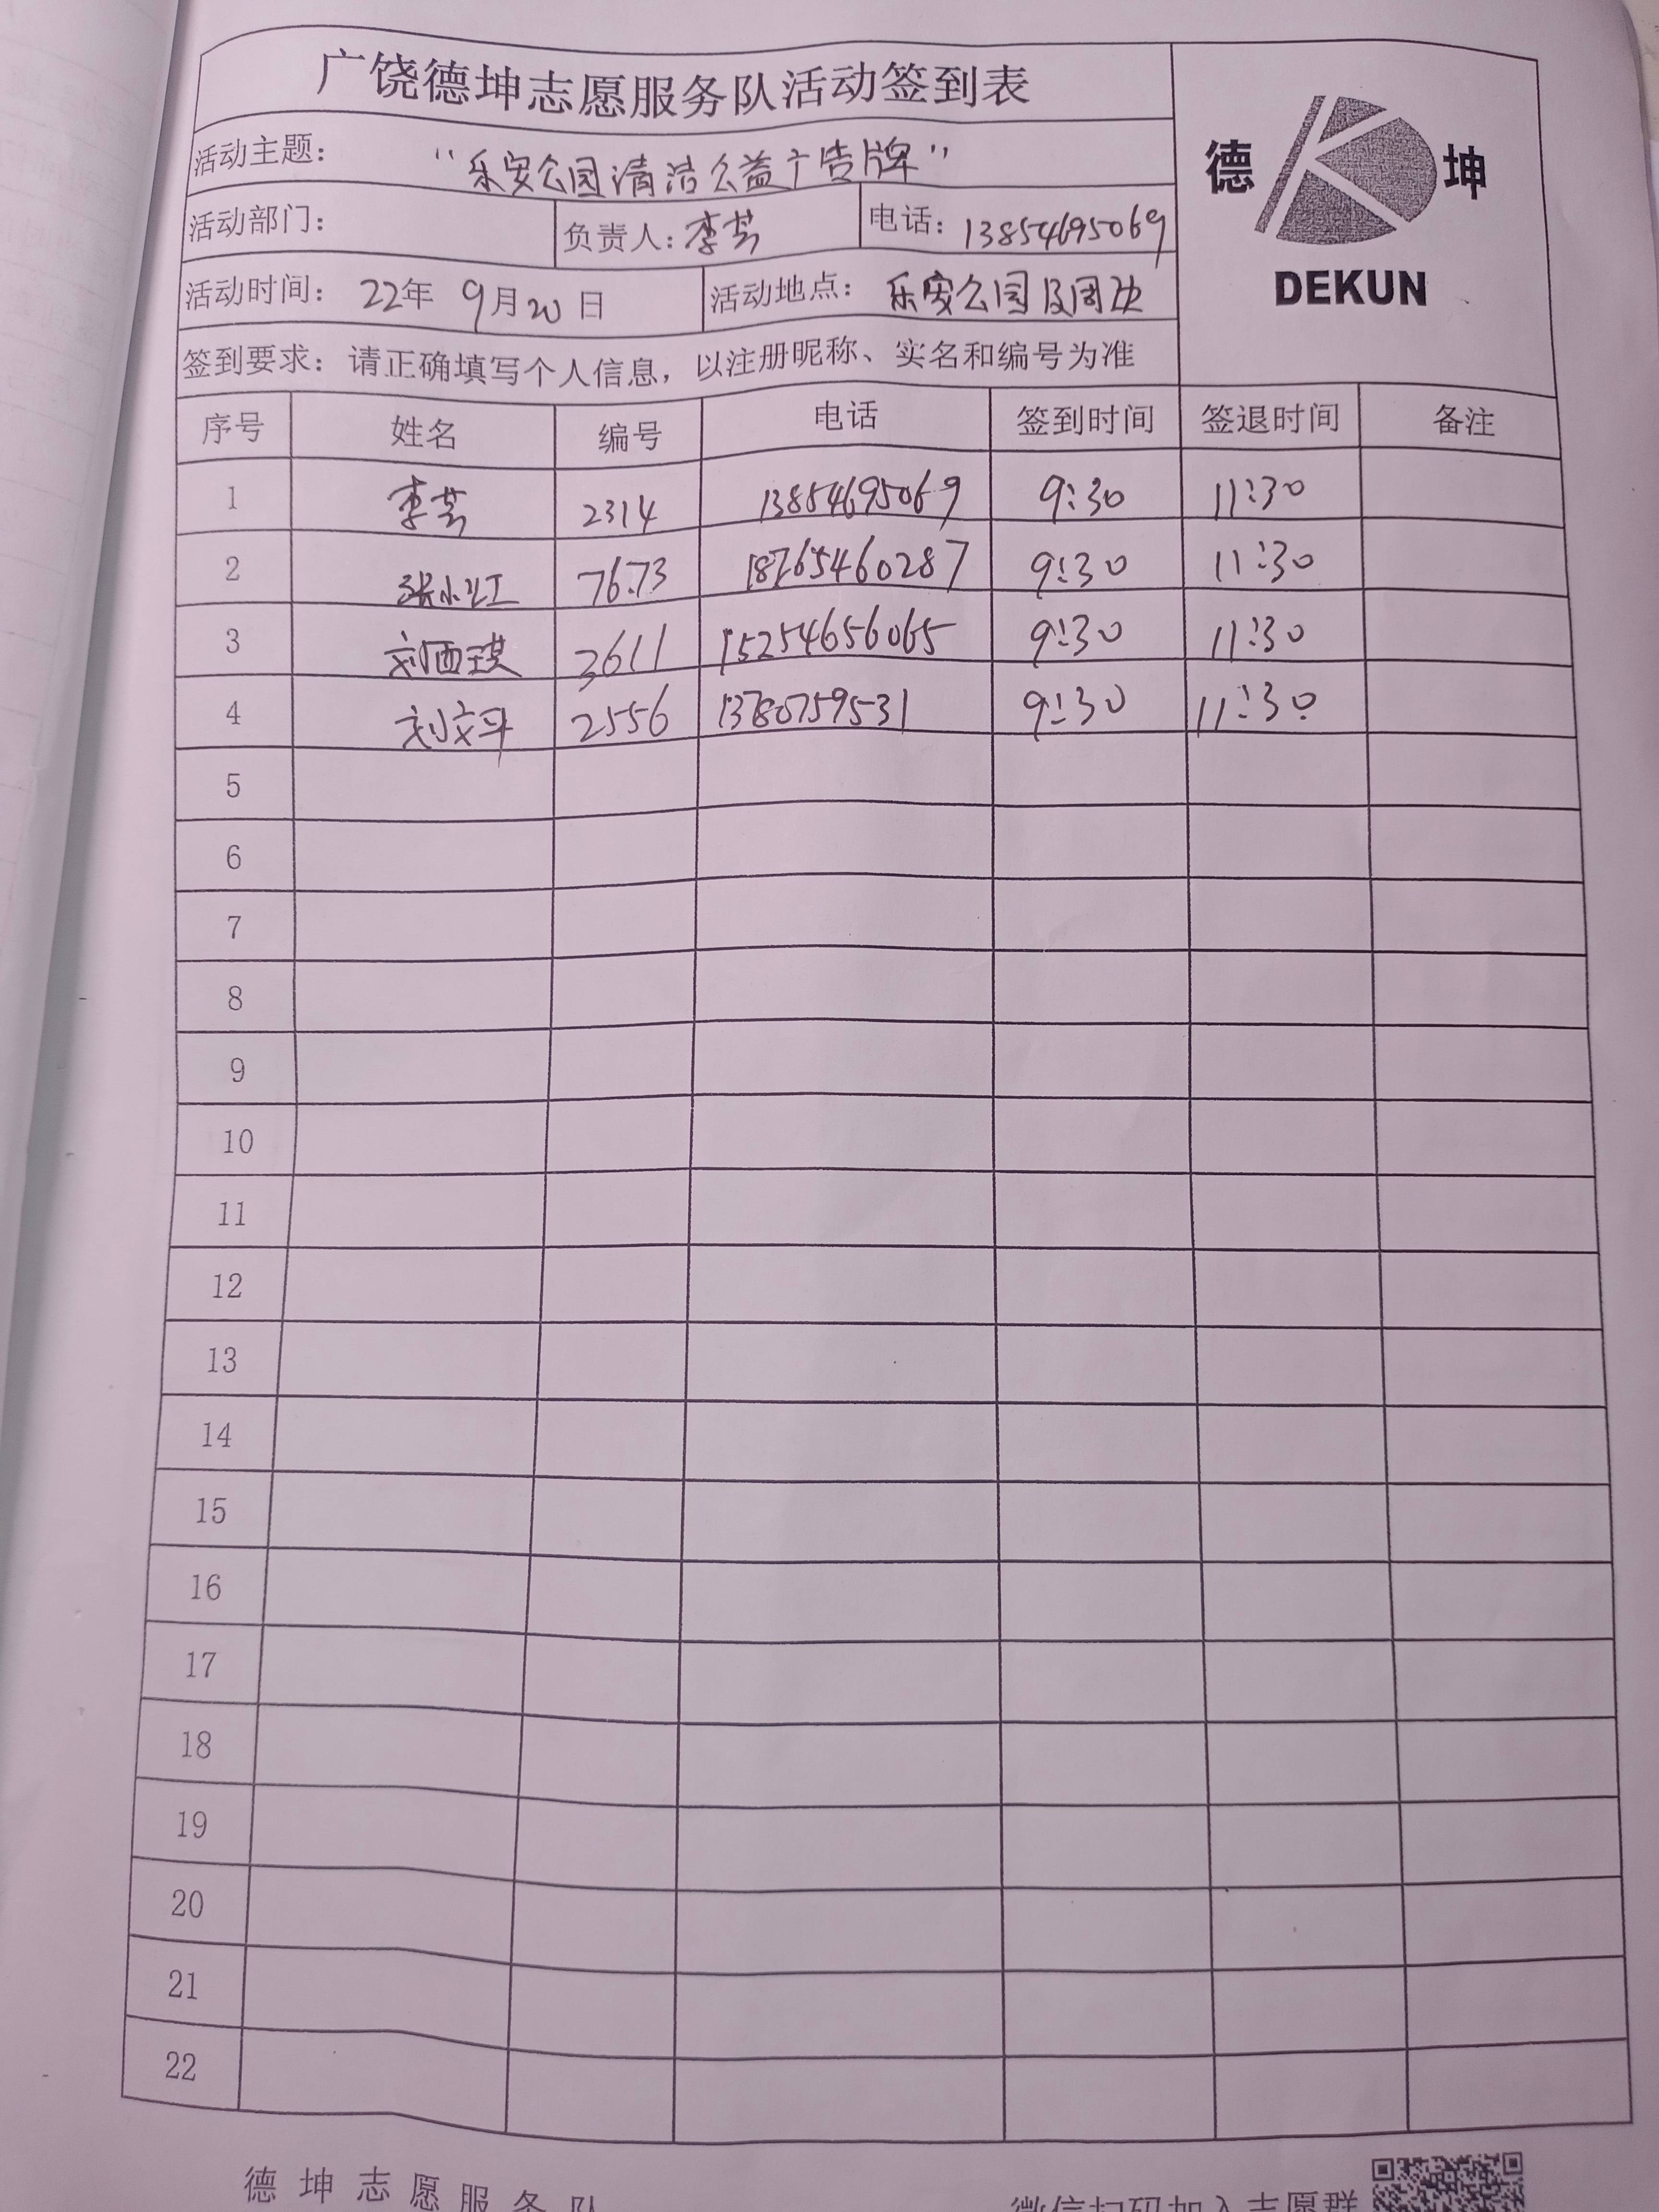 广饶德坤志愿服务队活动签到表
德 坤
DEKUN
活动主题： “乐安公园清洁公益广告牌”
活动部门： 负责人：李芸 电话：13854695069
活动时间： 22年 9月20日 活动地点： 乐安公园及周边
签到要求：请正确填写个人信息，以注册昵称、实名和编号为准
序号 姓名 编号 电话 签到时间 签退时间 备注
1 李芸 2314 13854695069 9:30 11:30
2 张小红 7673 18765460287 9:30 11:30
3 刘西琪 3611 15254656065 9:30 11:30
4 刘文平 2556 9:30 11:30
5
6
7
8
9
10
11
12
13
14
15
16
17
18
19
20
21
22
德坤志愿服务队 微信扫码加入志愿群